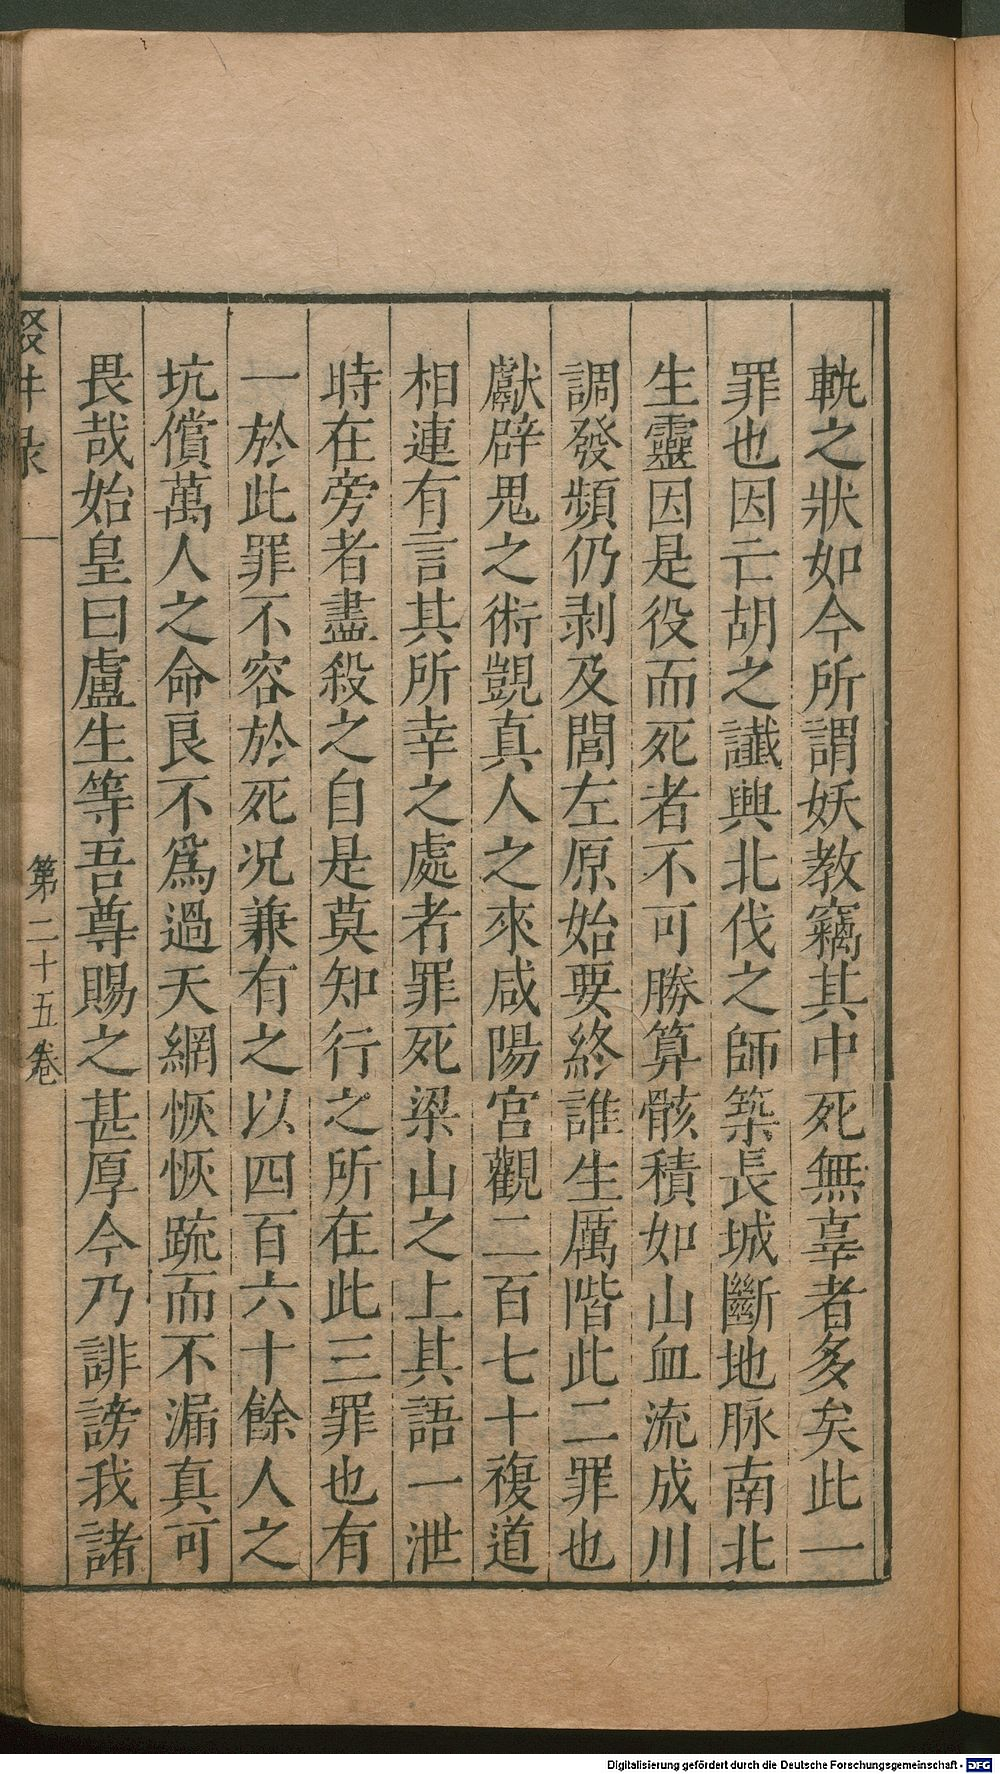 軌之狀如今所謂妖教竊其中死無辜者多矣此一
罪也因亡胡之讖興北伐之師築長城斷地脉南北
生靈因是役而死者不可勝算骸積如山血流成川
調發頻仍剥及閭左原始要終誰生厲階此二罪也
獻辟鬼之術覬真人之來咸陽宮觀二百七十複道
相連有言其所幸之處者罪死梁山之上其語一泄
時在旁者盡殺之自是莫知行之所在此三罪也有
一於此罪不容於死况兼有之以四百六十餘人之
坑償萬人之命良不爲過天網恢恢疏而不漏真可
畏哉始皇曰盧生等吾尊賜之甚厚今乃誹謗我諸
第二十五卷
Digitalisierung gefördert durch die Deutsche Forschungsgemeinschaft - DFG